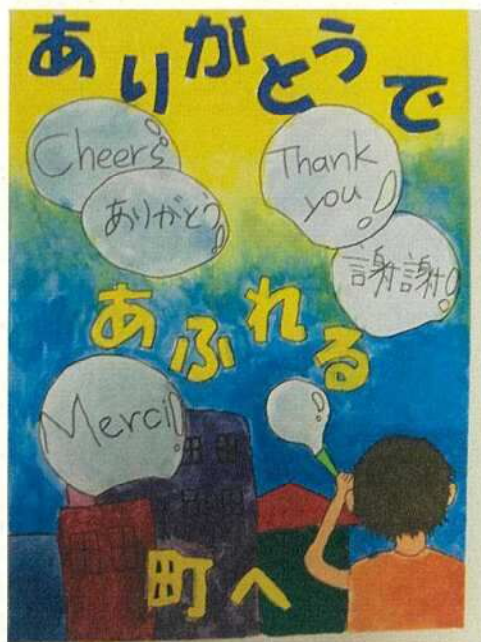 ありがとうで
Cheers
ありがとう
Thank
you!
謝謝!
あふれる
Merci!
町へ